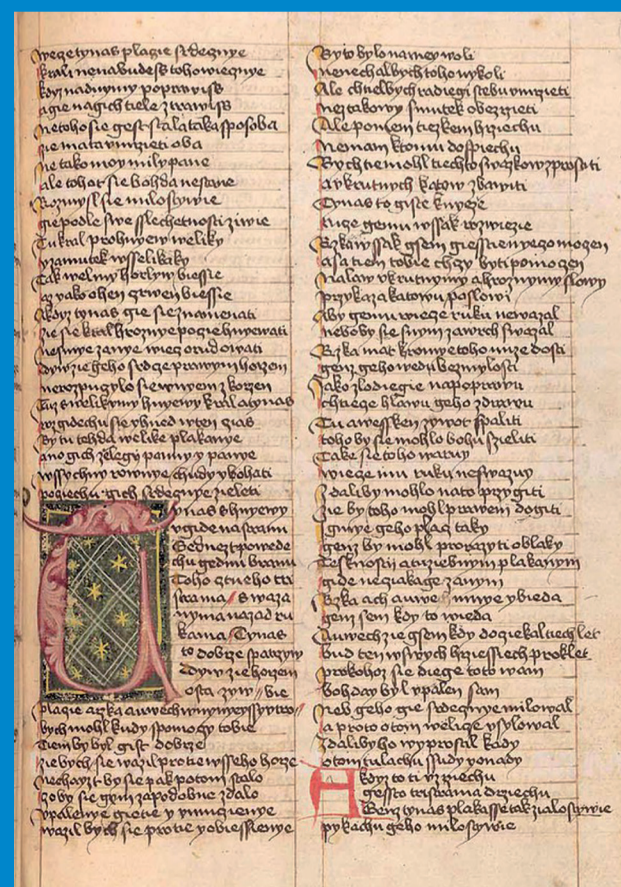 wecze tynas placzie srdeznye
krali nenabudess toho wieznye
kdyz nad nymy poprawiss
a gie nagich tiele ztrawiss
netoho sie gest stala taka sposoba
sie mata vmrzieti oba
ne tako moy mily pane
ale tohot sie bohda nestane
Rozmysl sie milostiwie
gie podle swe sslechetnosti ziwie
Tu kral pro hnyew weliky
y zamutek wsselikaky
Tak welmy horlyw biesse
az yako ohen zrwen biesse
kdyz tynas gie sie znamenati
zie sie kral hroznye poczie hnyewati
nesmye zanye wiecz orudowati
Tu s welikymy hnyewy kral a tynas
rozgidechu sie yhned w ten czas
By tu tehda welike plakanye
ano gich zelegy panny y panye
wssychny rownye chudy y bohati
pocziechu gich srdeznye zieleti
Tynas s hnyewy
vgide na stranu
Sednezt powede
chu gedmu branu
Toho ctneho tri
strama swaza
nyma nazad ru
kama Tynas
to dobrze spatrzyw
a dyw zie horzem
osta zyw bie
placzie a rzka auwech
bych mohl kudy spomocy tobie
Tiem by byl gist dobrze
zie bych sie wazil protiewsseho horze
nechazt by sie pak potom stalo
czo by sie gym zapodobne zdalo
vpalenye gietie y vmuczenye
wazil bych sie protie y obiessenye
By to bylo na mey woli
nenechal bych toho nykoli
Ale chtiel bych radiegi s tebu vmrzieti
nez takowy smutek obezrzieti
Ale pomem tiezkem hrziechu
nemam k tomu dospiechu
Bych tie mohl tiechto swazkow zprostiti
a vkrutnych katow zbawiti
Tynas to giste knyeze
rucze gemu wssak rozwieze
Rzka wssak gsem giesstie nyczo mozen
a sa tiem tobie chczy byti pomozen
na law vkrutnymy a hroznymy slowy
przykaza katowu poslowi
Aby gemu wiecze ruku newazal
nebo by sie s nym zawrch swazal
Rzka mat k tomu toho muze dosti
genz geho wedu bez mylosti
Jako zlodiegie na poprawu
chtiecze hlawu geho zdrawu
Tu a wessken zywot spaliti
toho by sie mohlo bohu zzieliti
Take sie toho waruy
wiecze mu ruku neswazuy
Zdali by mohlo na to przygiti
zie by toho mohl prawem dogiti
Gmye geho placz taky
genz by mohl prorazyti oblaky
Tesknosti a tuziebnym plakanym
gide nezdiakage za nym
Rzka ach auwe mnye y bieda
genz sem kdy to wieda
Auwech zie gsem kdy doczekal tiech let
bud ten w swych hrziessiech proklet
pro kohoz sie diege toto wam
bohday byl vpalen sam
neb geho gie srdeznye milowal
a proto o tom welicze vsylowal
zdali by ho wyprostil kady
o tom tulachu ssudy y onady
A kdyz to ti v rziechu
gessto tristrama drziechu
Benz tynas plakasse tak zialostiwie
pykachu geho milostiwie